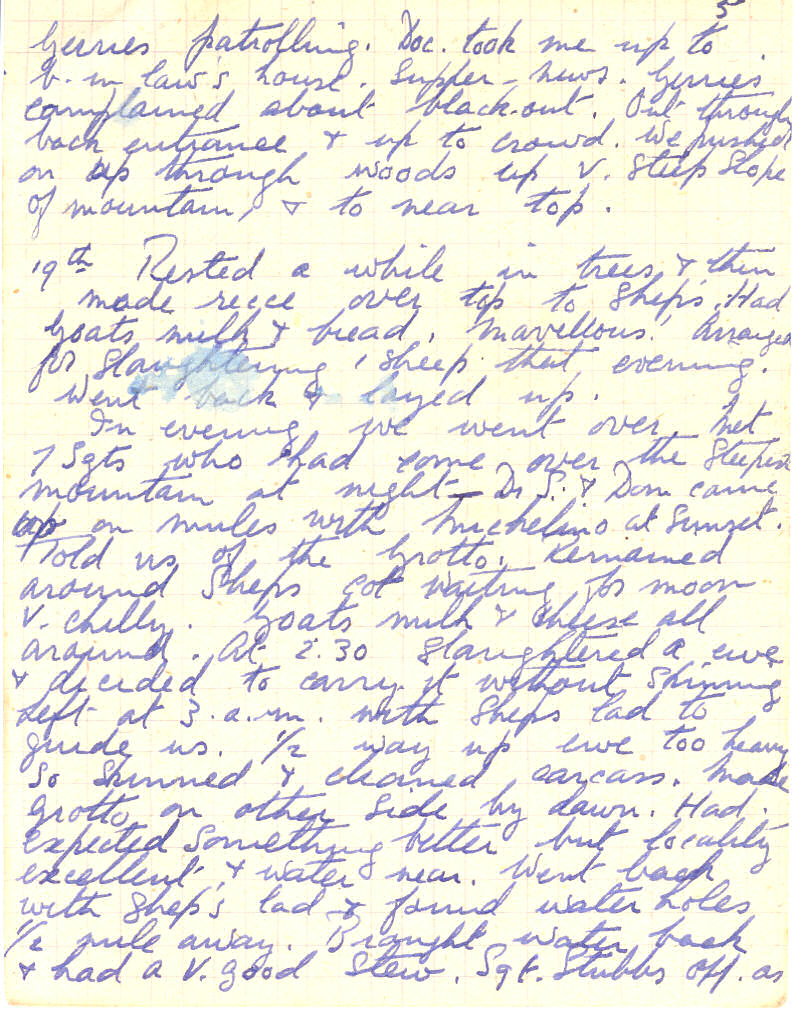 5
Gerries patrolling. Doc. took me up to
b. in law's house. Supper – news. Gerries
complained about black-out. Out through
back entrance & up to crowd. We pushed
on up through woods up v. steep slope
of mountain, & to near top.
19th Rested a while in trees & then
made recce over top to Sheps. Had
goats milk & bread, marvellous! Arranged
for slaughtering 1 sheep that evening.
Went back & layed up.
In evening we went over, met
7 Sgts who had come over the steepest
mountain at night – Dr S. & Dom came
up on mules with Michelino at sunset.
Told us of the Grotto. Remained
around Sheps cot waiting for moon
v. chilly. Goats milk & cheese all
around. At 2.30 slaughtered a ewe
& decided to carry it without skinning
Left at 3.a.m. with Sheps lad to
guide us. 1/2 way up ewe too heavy
so skinned & cleaned carcass. Made
grotto on other side by dawn. Had
expected something better but locality
excellent, & water near. Went back
with Shep's lad & found water holes
1/2 mile away. Brought water back
& had a v. good stew. Sgt. Stubbs off. as